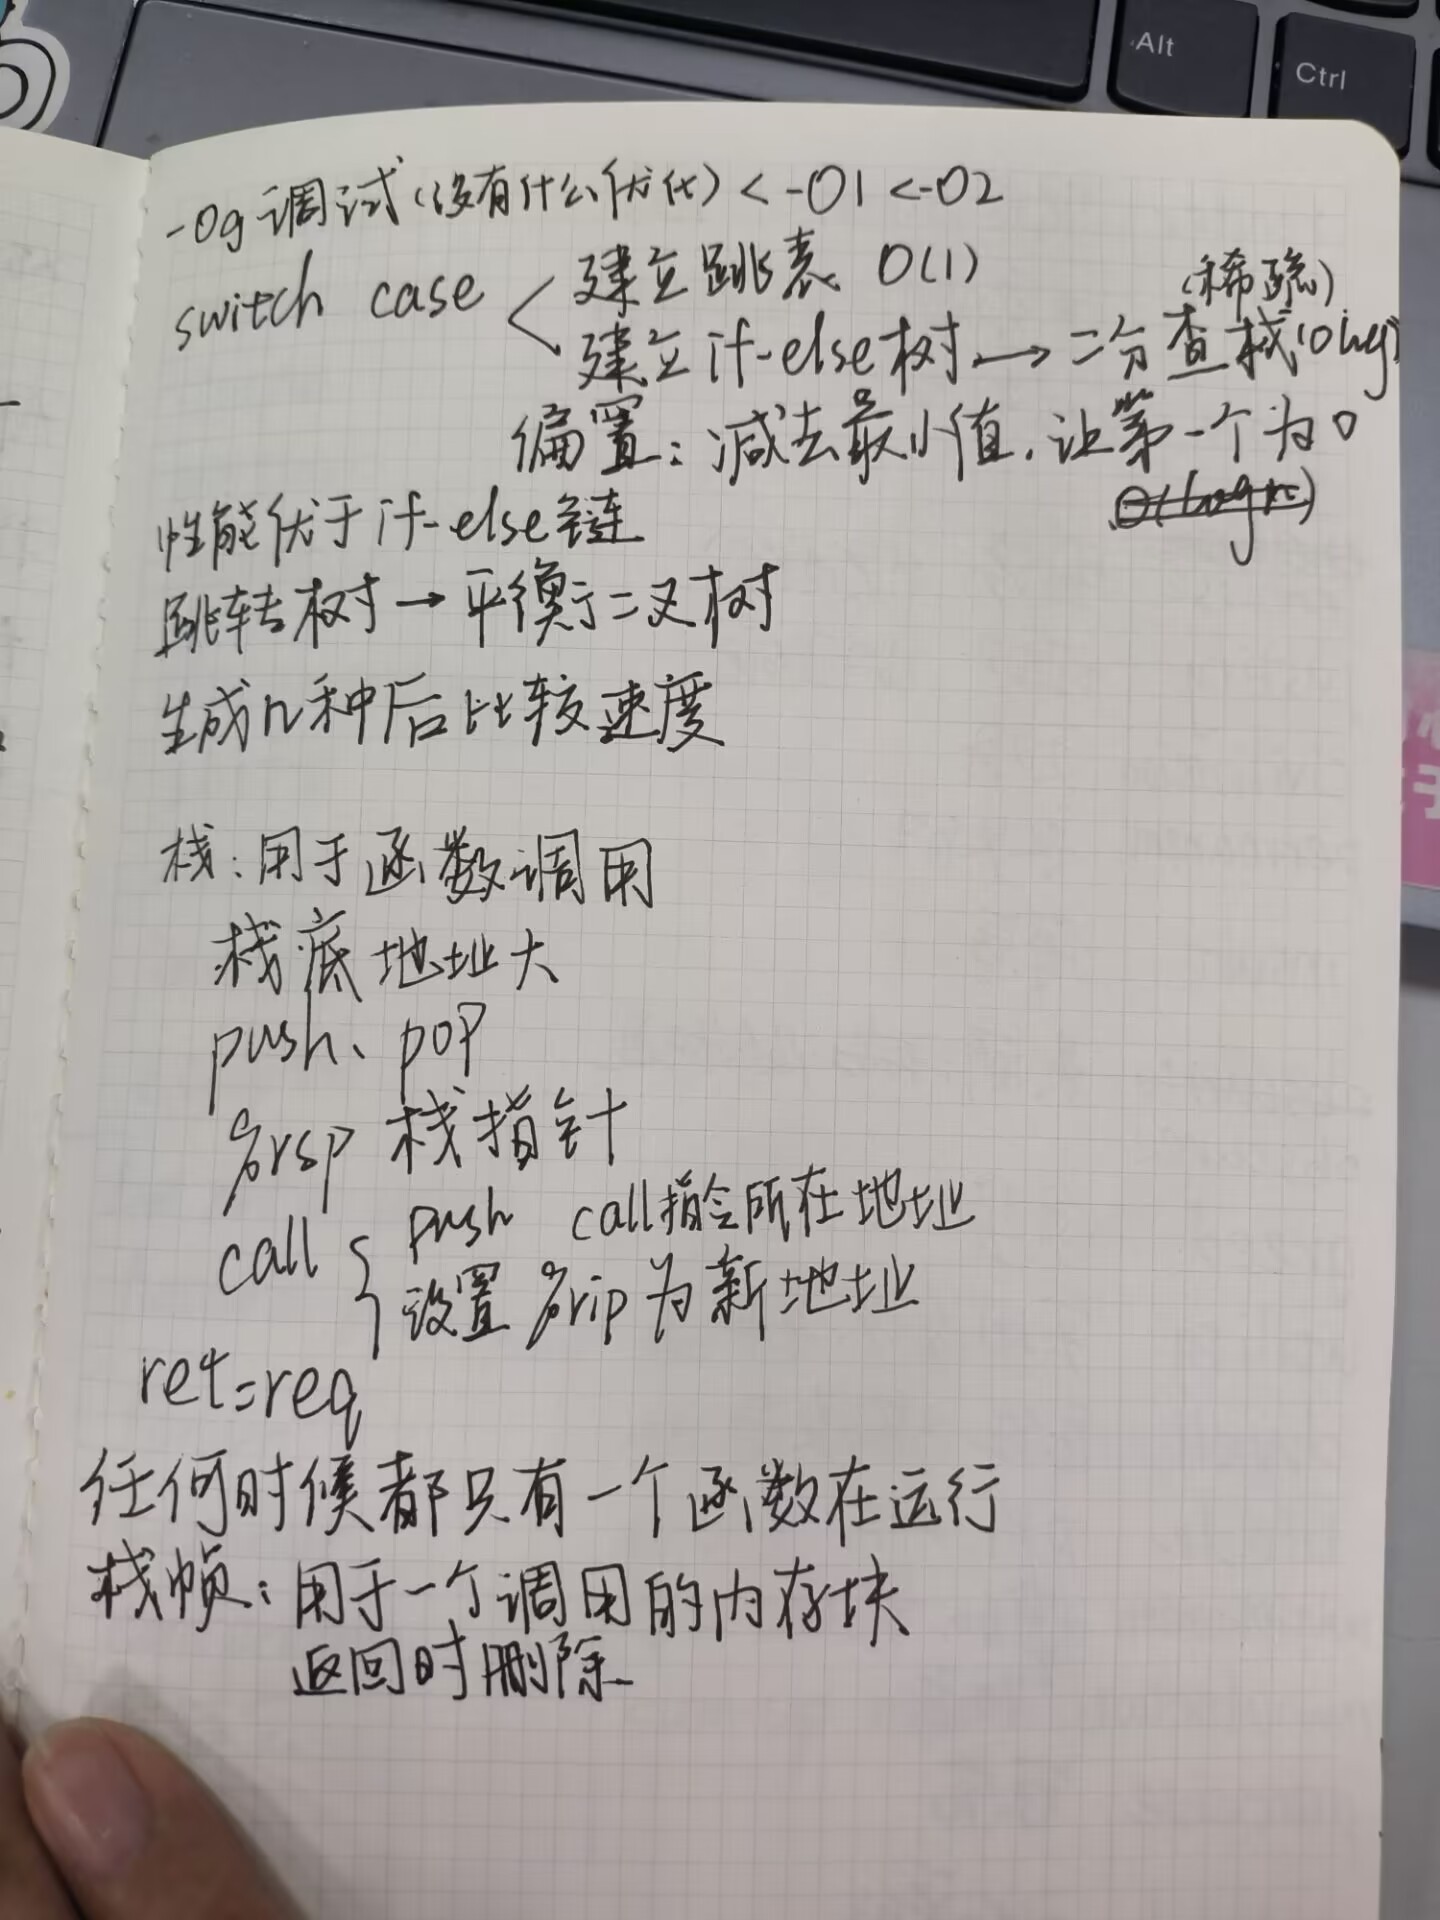 Alt
Ctrl
-Og 调试(没有什么优化) < -O1 < -O2
switch case
建立跳表 O(1)
(稀疏)
建立 if-else 树 → 二分查找
偏置: 减去最小值, 让第一个为0
O(logn)
性能优于 if-else 链
跳转树 → 平衡二叉树
生成几种后比较速度
栈: 用于函数调用
栈底地址大
push、pop
%rsp 栈指针
call
push call指令所在地址
设置 %rip 为新地址
ret=req
任何时候都只有一个函数在运行
栈帧: 用于一个调用的内存块
返回时删除